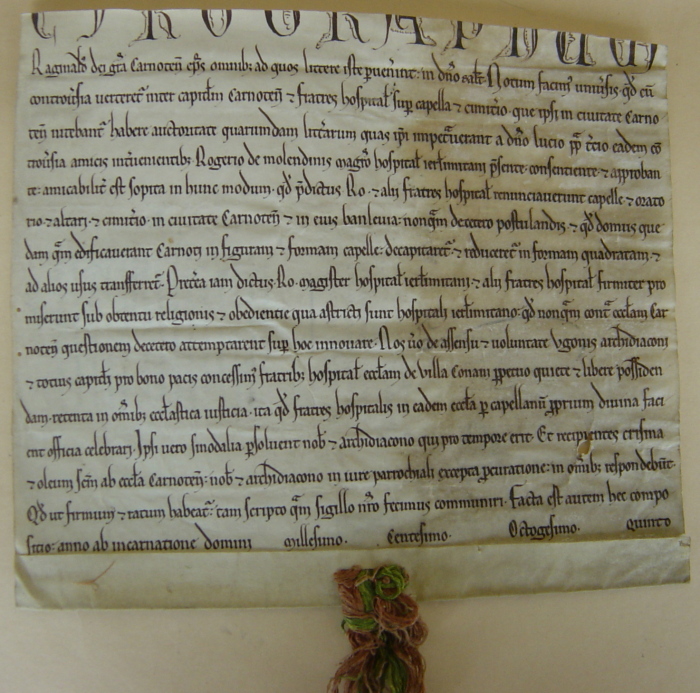 CYROGRAPHUM
Raginald' dei gr̄a Carnoteñ ep̄s omnib; ad quos littere iste ꝑuen̄int: in dn̄o sał̄t. Notum facim' uniu̾sis qd̄ cū
cont̾ou̾sia uerteret᷑ int̾ capitłm Carnoteñ ⁊ fratres hospitał̄ sup̱ capella ⁊ cimit̾io. que ipsi in ciuitate Carno
teñ nitebant᷑ habere auctoritate quarumdam litt̾arum quas ip̄i impet̾uerant a dn̄o lucio pp̄ t̾cio eadem cō
t̾ou̾sia amicis int̾uenientib; Rogerio de molendinis magr̄o hospitał̄ ierłimitani p̄sente. consentiente ⁊ approban
te: amicabilit̾ est sopita in hunc modum. qd̄ p̄dictus Ro. ⁊ alii fratres hospitał̄ renunciauerunt capelle ⁊ orato
rio ⁊ altari. ⁊ cimit̾io. in ciuitate Carnoteñ ⁊ in eius banleuia: nonq̄m decet̾o postulandis ⁊ qd̄ domus que
dam q̄m edificauerant Carnoti in figuram ⁊ formam capelle. decapitaret᷑. ⁊ reduceret᷑ in formam quadratam. ⁊
ad alios usus transfferret᷑. Pret̾ea iam dictus Ro. magister hospitał̄ ierłimitani ⁊ alii fratres hospitał̄ firmiter pro
miserunt sub obtentu religionis ⁊ obedientie qua astricti sunt hospitali ierłimitano. qd̄ nonq̄m cont̾ ecclam̄ Car
noteñ questionem decetero attemptarent sup̱ hoc innouare. Nos u̾o de assensu ⁊ uoluntate Vgonis archidiaconi
⁊ totius capitłi pro bono pacis concessim' fratrib; hospitał̄ ecclam̄ de villa Conani ꝑpetuo quiete ⁊ libere possiden
dam. retenta in om̄ib; eccl̄astica iusticia. ita qd̄ fratres hospitalis in eadem eccl̄a ꝑ capellanū ꝓprium diuina faci
ent officia celebrari. Ipsi uero sinodalia ꝑsoluent nob̄ ⁊ archidiacono qui pro tempore erit. Et recipientes crisma
⁊ oleum sc̄m ab eccl̄a Carnoteñ: nob̄ ⁊ archidiacono in iure parrochiali excepta ꝓcuratione: in om̄ib; respondebūt.
Qd̄ ut firmum ⁊ ratum habeat᷑: tam scripto q̄m sigillo nr̄o fecimus communiri. Facta est autem hec compo
sitio: anno ab incarnatione domini Millesimo. Centesimo. Octogesimo. quinto